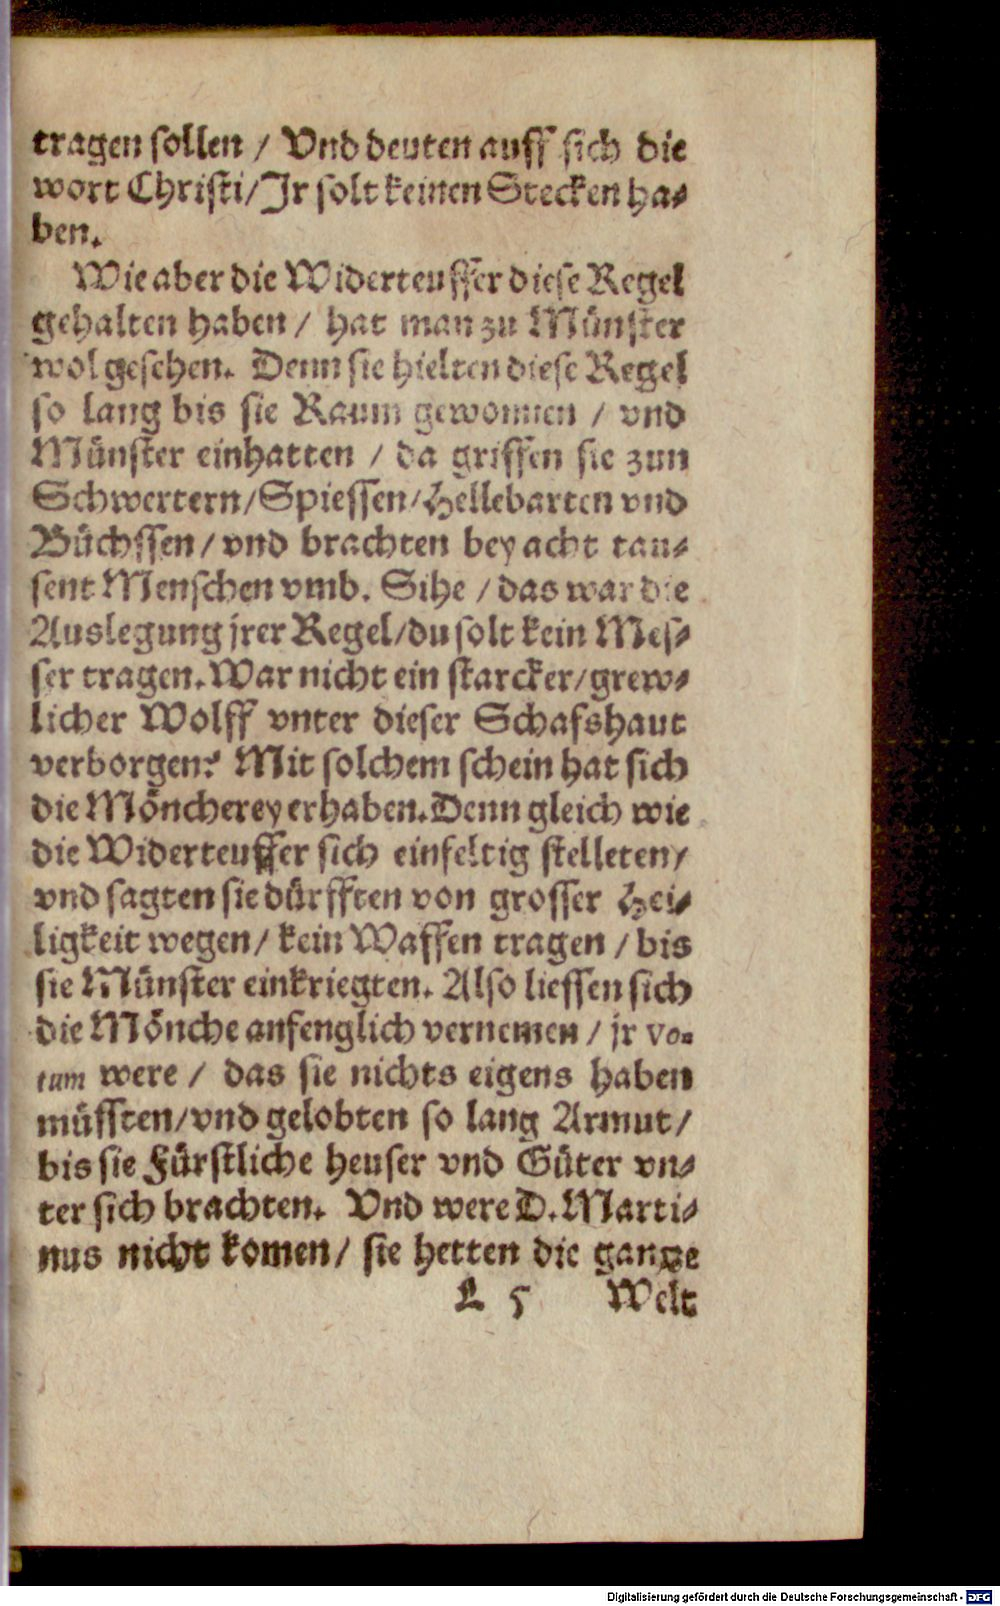 tragen sollen / Vnd deuten auff sich die
wort Christi/Jr solt keinen Stecken ha-
ben.
Wie aber die Widerteuffer diese Regel
gehalten haben / hat man zu Münster
wol gesehen. Denn sie hielten diese Regel
so lang bis sie Raum gewonnen / vnd
Münster einhatten / da griffen sie zun
Schwertern/Spiessen/Hellebarten vnd
Büchssen/ vnd brachten bey acht tau-
sent Menschen vmb. Sihe / das war die
Auslegung jrer Regel/du solt kein Mes-
ser tragen. War nicht ein starcker/grew-
licher Wolff vnter dieser Schafshaut
verborgen? Mit solchem schein hat sich
die Möncherey erhaben. Denn gleich wie
die Widerteuffer sich einfeltig stelleten/
vnd sagten sie dürfften von grosser Hei-
ligkeit wegen/ kein Waffen tragen / bis
sie Münster einkriegten. Also liessen sich
die Mönche anfenglich vernemen / jr vo-
tum were / das sie nichts eigens haben
müssten/vnd gelobten so lang Armut/
bis sie Fürstliche heuser vnd Güter vn-
ter sich brachten. Vnd were D. Marti-
nus nicht komen/ sie hetten die gantze
L 5 Welt
Digitalisierung gefördert durch die Deutsche Forschungsgemeinschaft - DFG